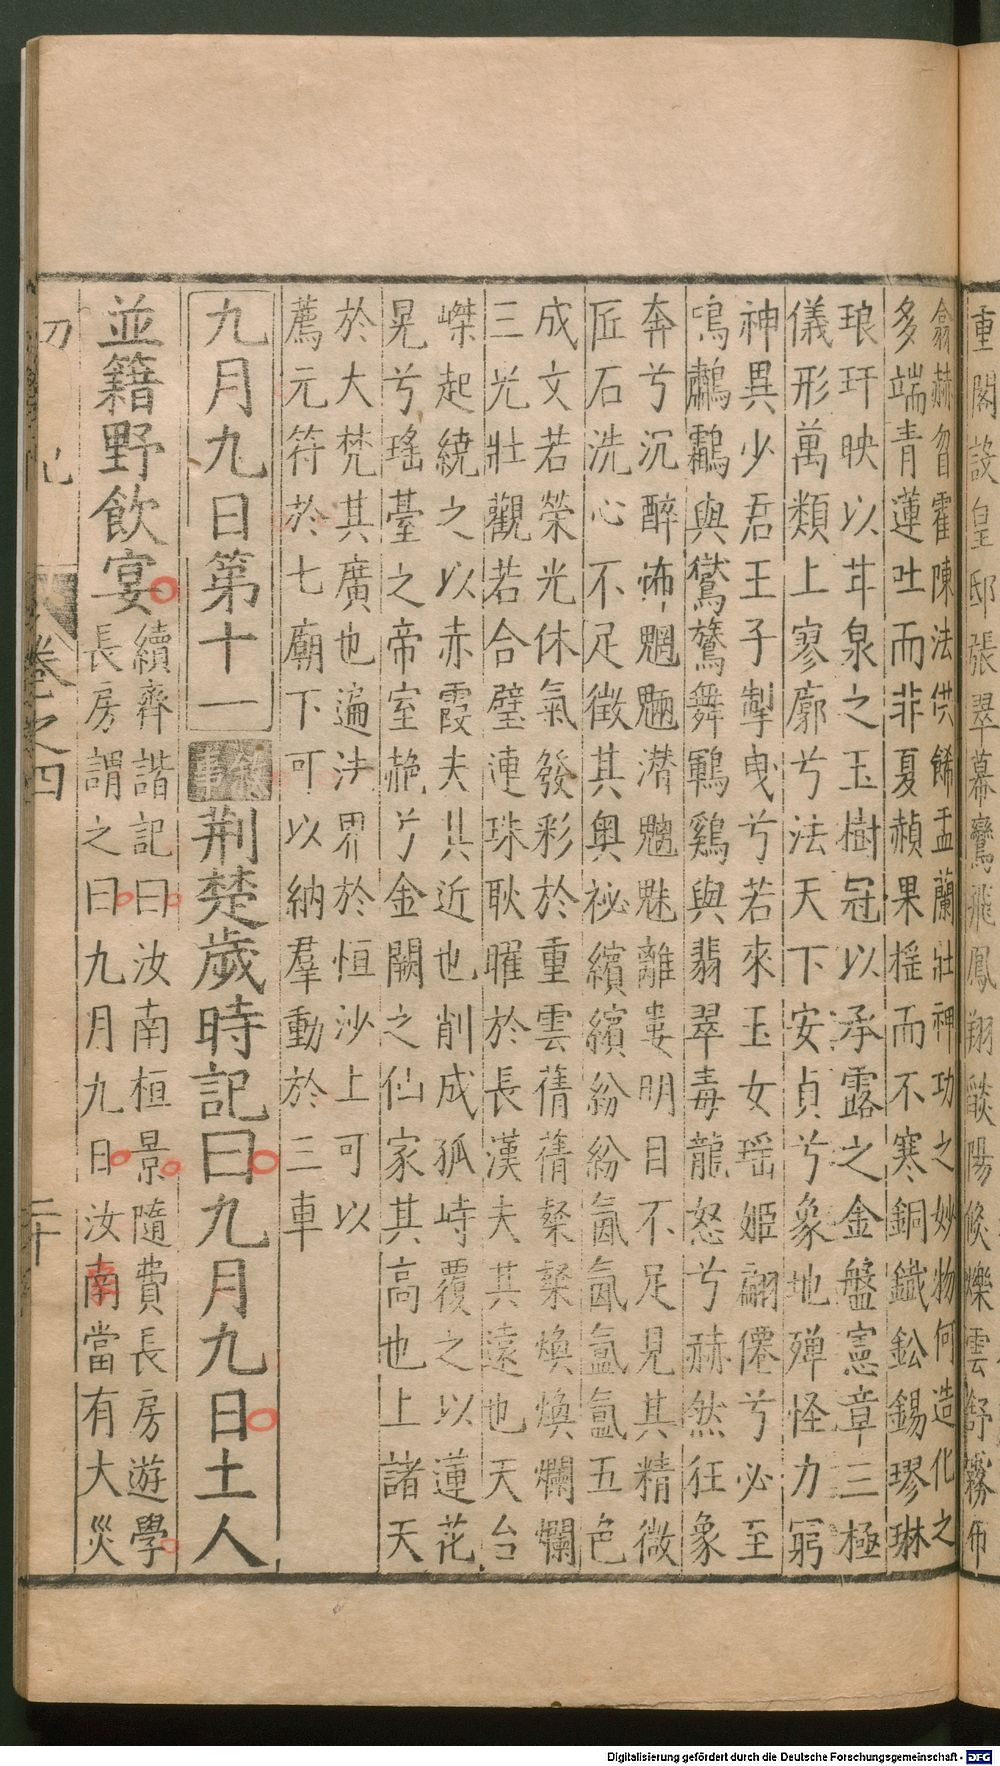 重閣設皇邸張翠幕鸞飛鳳翔燄陽倐爍雲舒霧布
翕赫曶霍陳法供餙盂蘭壯神功之妙物何造化之
多端青蓮吐而非夏赬果揺而不寒銅鐵鈆錫璆琳
琅玕映以甘泉之玉樹冠以承露之金盤憲章三極
儀形萬類上寥廓兮法天下安貞兮象地殫怪力窮
神異少君王子掣曳兮若來玉女瑶姬翩僊兮必至
鳴鸕鸖與鸑鷟舞鶤鷄與翡翠毒龍怒兮赫然狂象
奔兮沉醉怖魍魎潜魑魅離婁明目不足見其精微
匠石洗心不足徴其奥祕繽繽紛紛氤氤氳氳五色
成文若榮光休氣發彩於重雲蒨蒨粲粲煥煥爛爛
三光壯觀若合璧連珠耿曜於長漢夫其遠也天台
嵥起繞之以赤霞夫其近也削成孤峙覆之以蓮花
晃兮瑤臺之帝室赩兮金闕之仙家其高也上諸天
於大梵其廣也遍法界於恒沙上可以
薦元符於七廟下可以納羣動於三車
九月九日第十一 叙事 荆楚歲時記曰九月九日土人
並籍野飲宴
續齊諧記曰汝南桓景隨費長房遊學
長房謂之曰九月九日汝南當有大災
初記
卷之四
二十
Digitalisierung gefördert durch die Deutsche Forschungsgemeinschaft - DFG